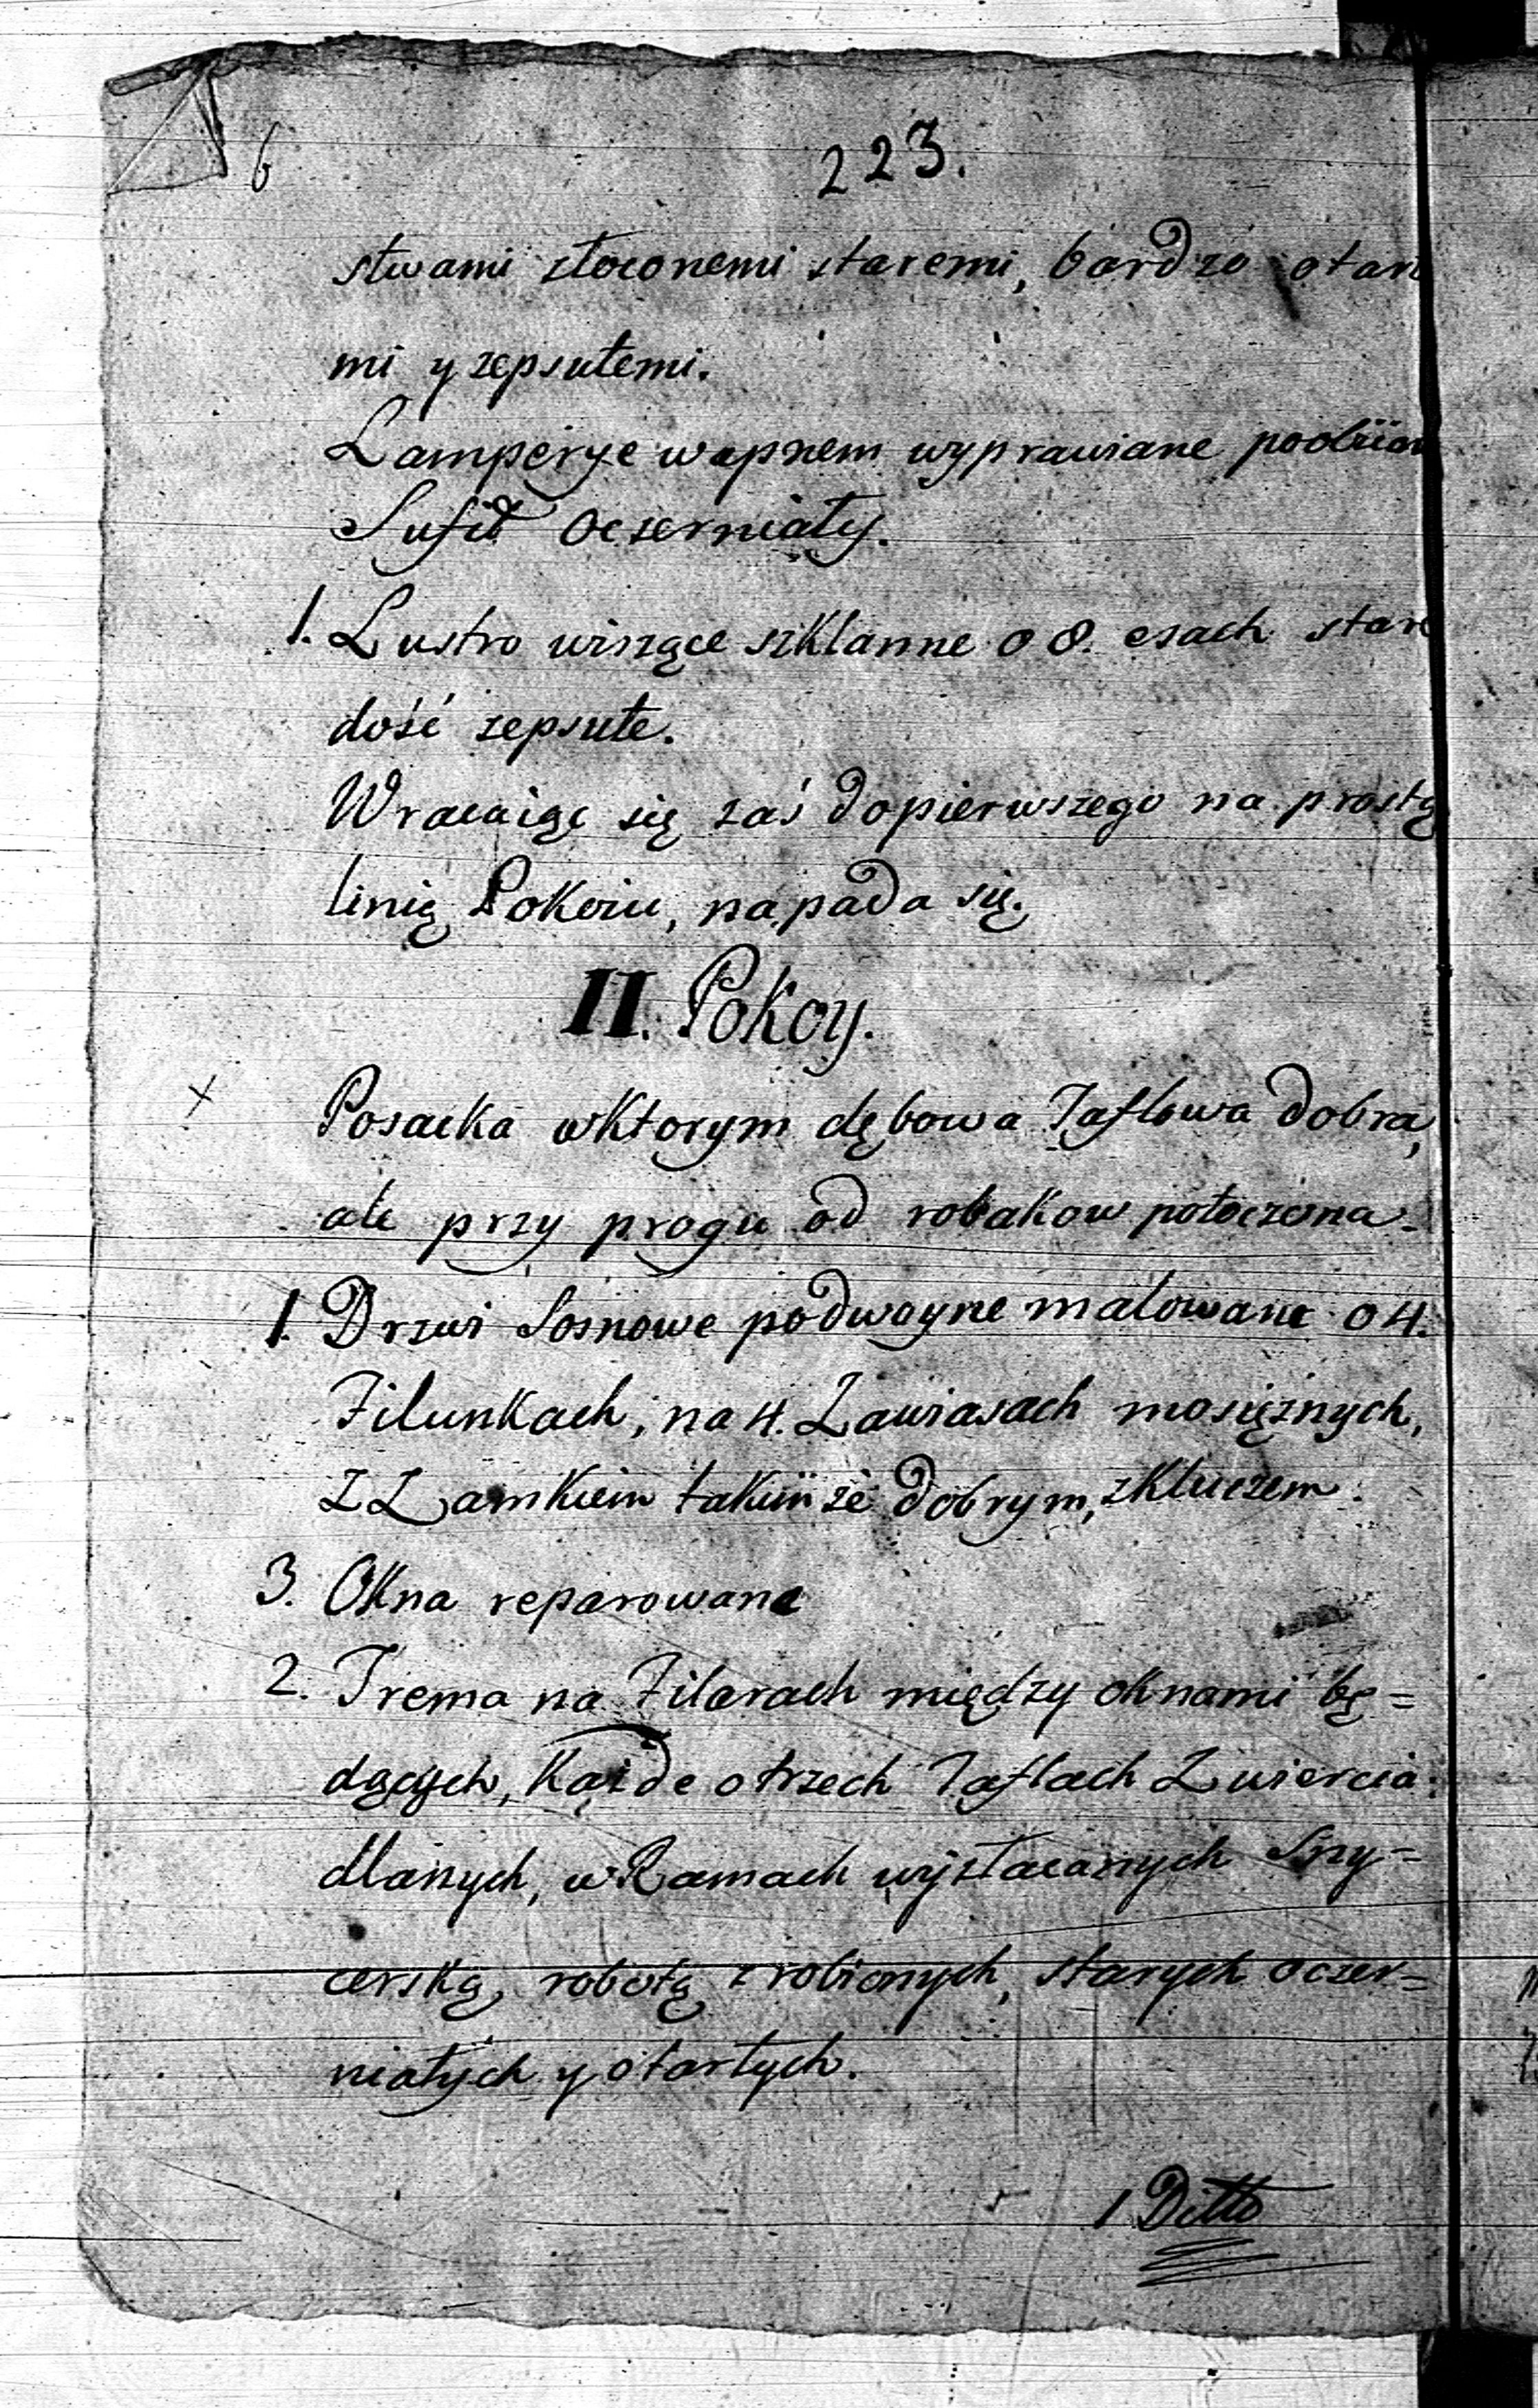 6
223.
stwami złoconemi staremi, bardzo otar
mi y zepsutemi.
Lamperye wapnem wyprawiane podbiian
Sufit Oczerniały.
1. Lustro wiszące szklanne o 8. esach star
dość zepsute.
Wracaiąc się zaś do pierwszego na prostą
linią Pokoiu, napada się.
II. Pokoy.
x Posacka wktorym dębowa Taflowa dobra,
ale przy progu od robakow potoczona.
1. Drzwi Sosnowe podwoyne malowane o 4.
Filunkach, na 4. Zawiasach mosiężnych,
Z Zamkiem takiimże dobrym, zkluczem.
3. Okna reparowane
2. Trema na Filarach między oknami bę=
dących, Każde o trzech Taflach Zwiercia=
dlanych, w Ramach wyzłacanych Sny=
cerską robotą zrobionych, starych oczer=
niałych y otartych.
1 Ditto